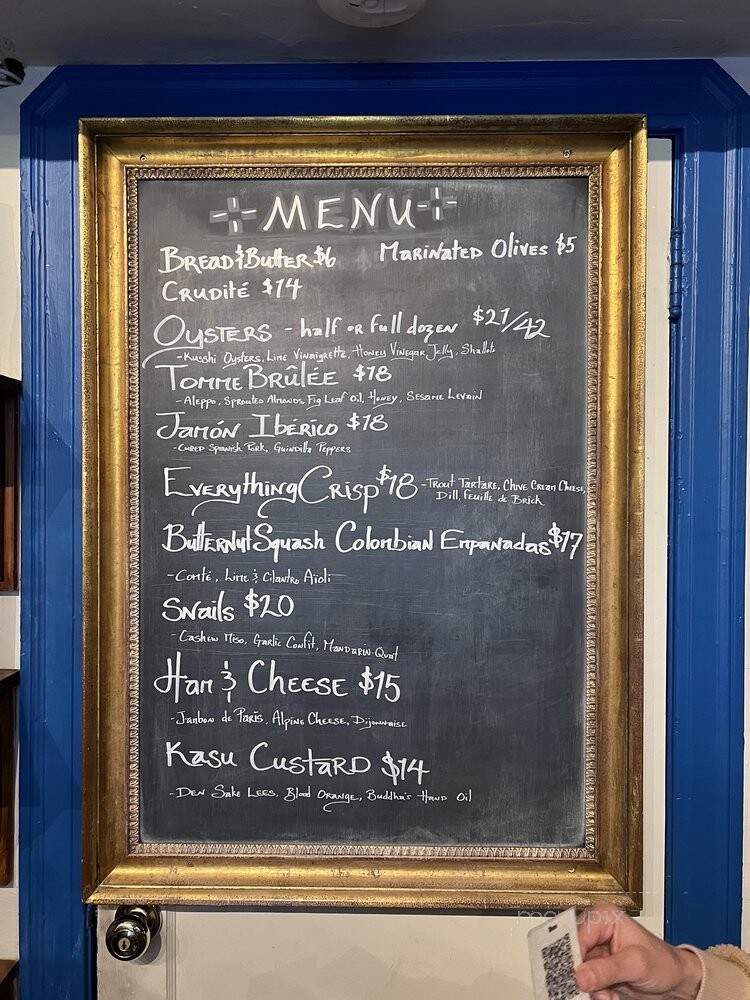 MENU
Bread & Butter $6 Marinated Olives $5
Crudité $14
Oysters - half or full dozen $21/42
- Kusshi Oysters, Lime Vinaigrette, Honey Vinegar Jelly, Shallots
Tomme Brûlée $18
- Aleppo, Sprouted Almonds, Fig Leaf Oil, Honey, Sesame Levain
Jamón Ibérico $18
- Cured Spanish Pork, Guindilla Peppers
Everything Crisp $18 - Trout Tartare, Chive Cream Cheese,
Dill, Feuille de Brick
Butternut Squash Colombian Empanadas $17
- Comté, Lime & Cilantro Aioli
Snails $20
- Cashew Miso, Garlic Confit, Mandarin-Quat
Ham & Cheese $15
- Jambon de Paris, Alpine Cheese, Dijonnaise
Kasu Custard $14
- Den Sake Lees, Blood Orange, Buddha's Hand Oil